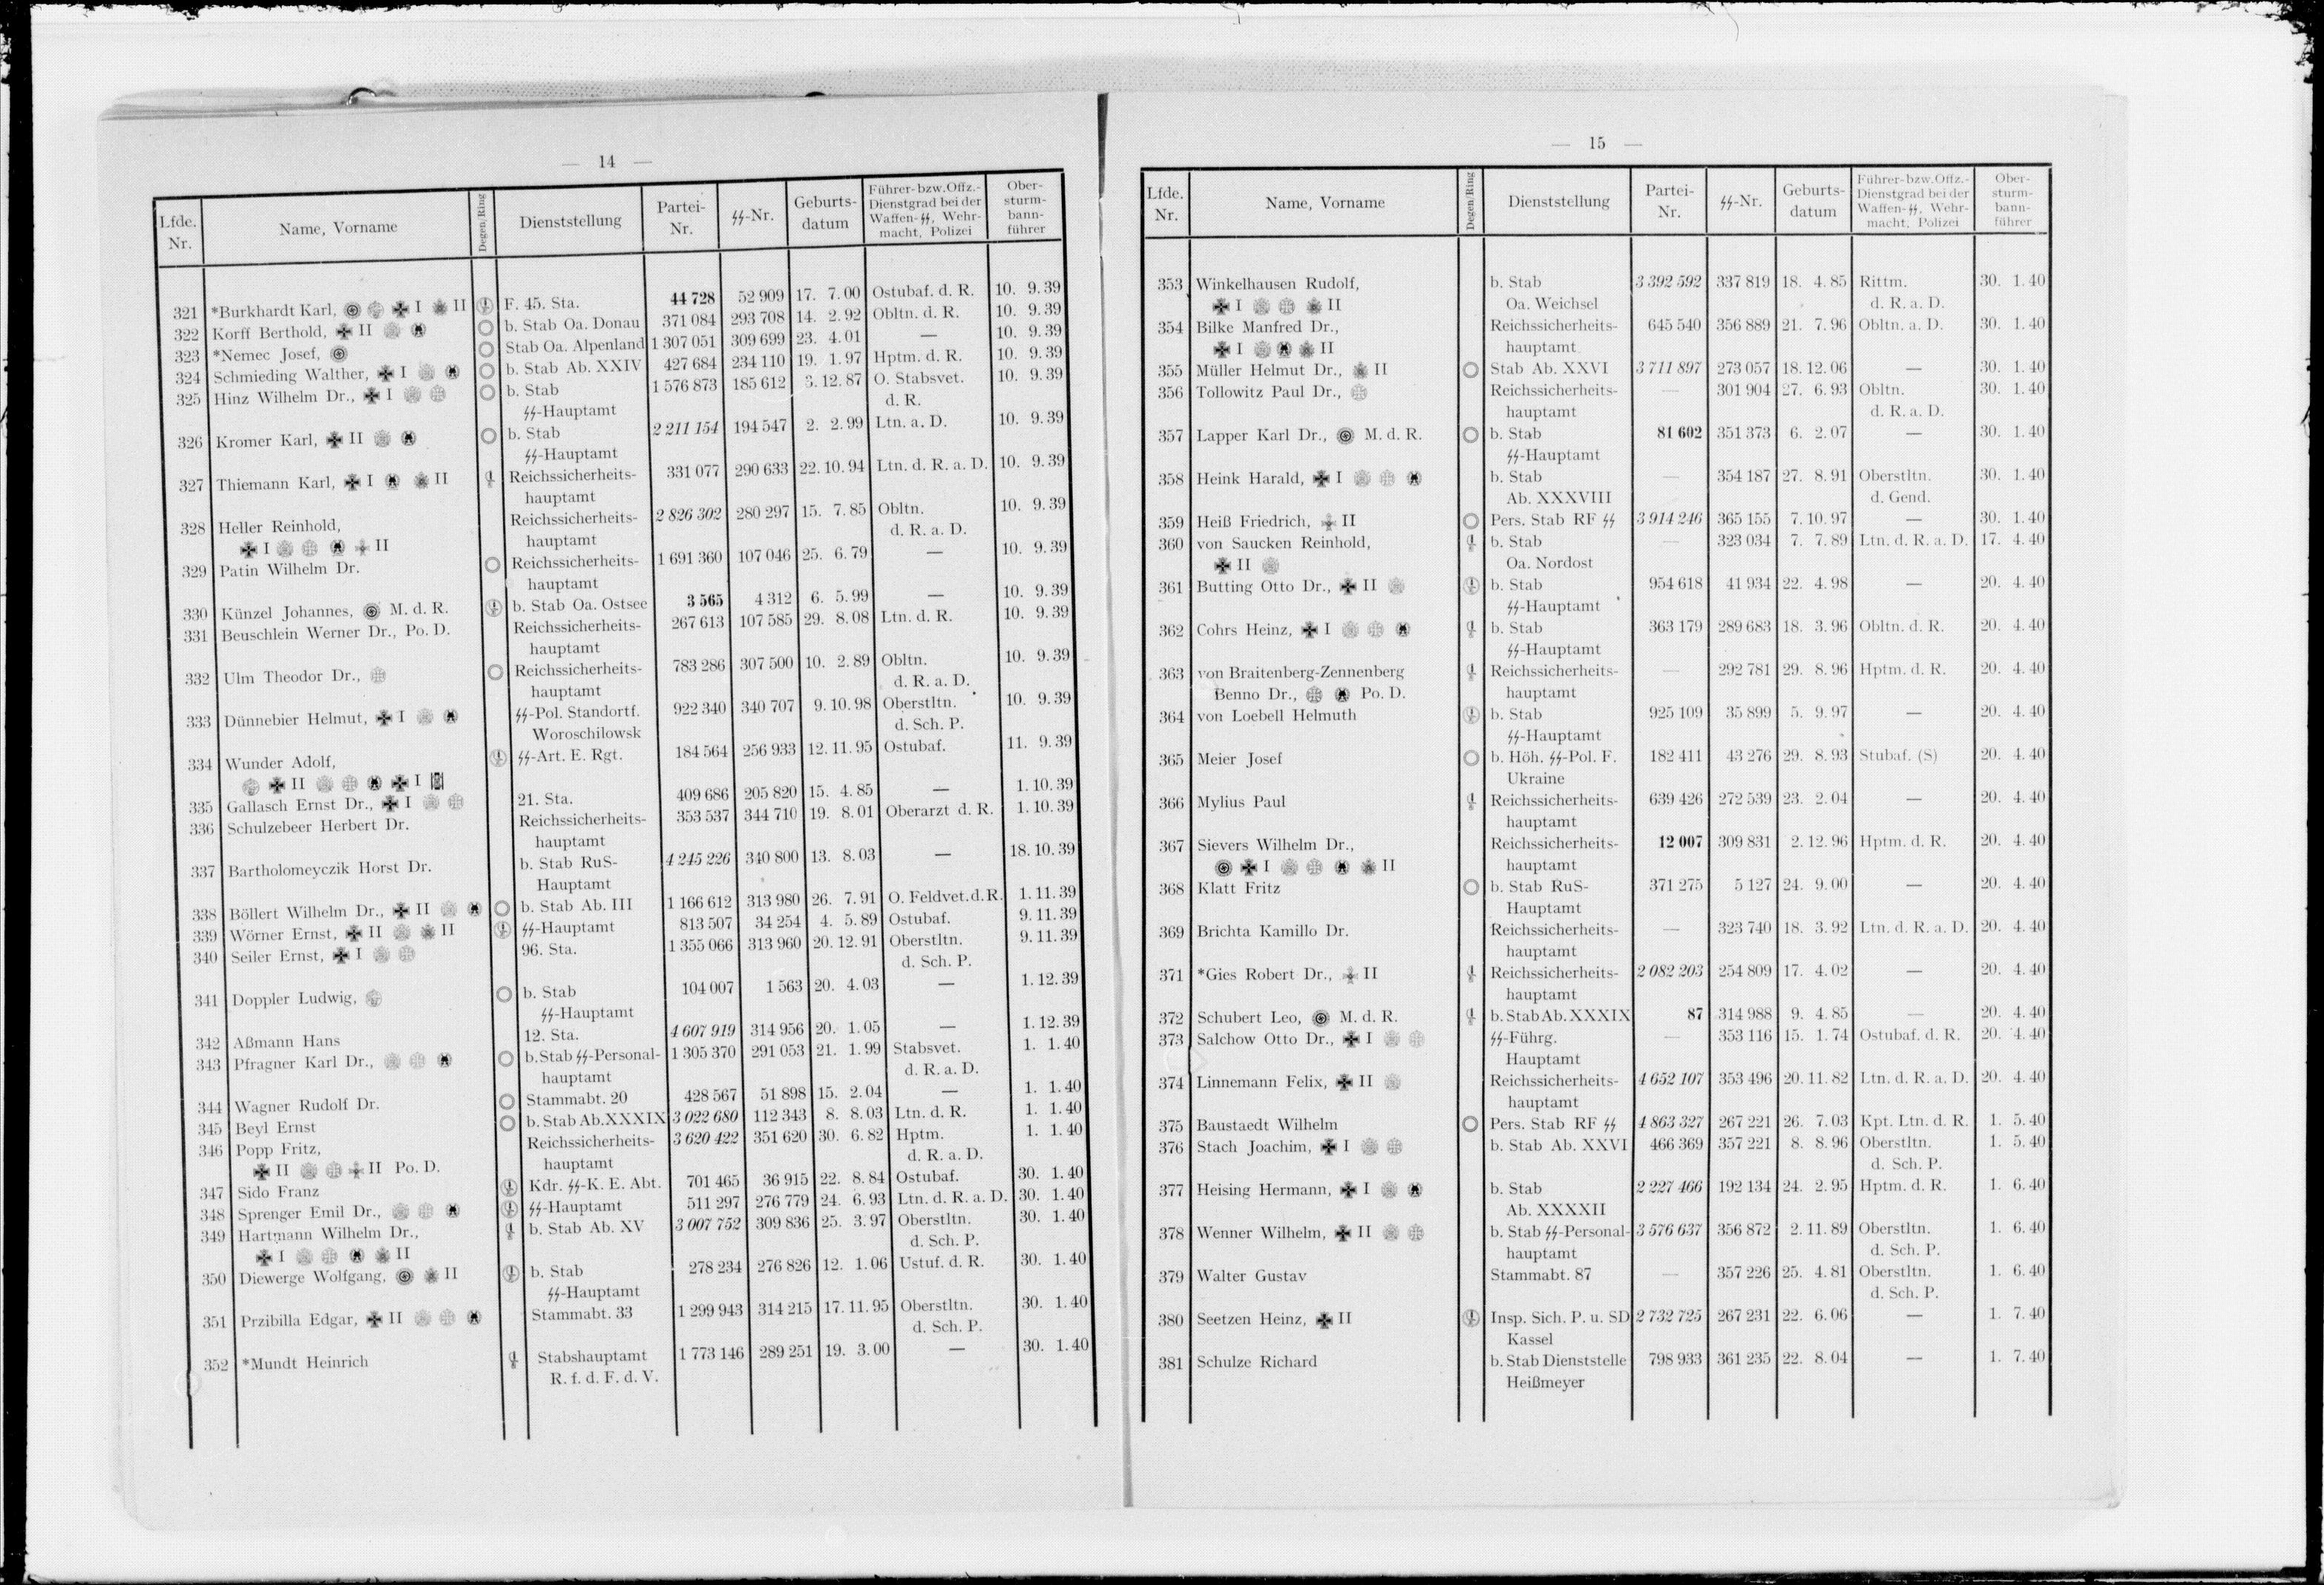 — 14 —
Lfde. Nr. Name, Vorname Degen/Ring Dienststellung Partei-Nr. ᛋᛋ-Nr. Geburts-datum Führer- bzw. Offz.-Dienstgrad bei der Waffen-ᛋᛋ, Wehr-macht, Polizei Ober-sturm-bann-führer
321 *Burkhardt Karl, I II F. 45. Sta. 44 728 52 909 17. 7. 00 Ostubaf. d. R. 10. 9. 39
322 Korff Berthold, II b. Stab Oa. Donau 371 084 293 708 14. 2. 92 Obltn. d. R. 10. 9. 39
323 *Nemec Josef, Stab Oa. Alpenland 1 307 051 309 699 23. 4. 01 — 10. 9. 39
324 Schmieding Walther, I b. Stab Ab. XXIV 427 684 234 110 19. 1. 97 Hptm. d. R. 10. 9. 39
325 Hinz Wilhelm Dr., I b. Stab 1 576 873 185 612 3. 12. 87 O. Stabsvet. 10. 9. 39
ᛋᛋ-Hauptamt d. R.
326 Kromer Karl, II b. Stab 2 211 154 194 547 2. 2. 99 Ltn. a. D. 10. 9. 39
ᛋᛋ-Hauptamt
327 Thiemann Karl, I II Reichssicherheits- 331 077 290 633 22. 10. 94 Ltn. d. R. a. D. 10. 9. 39
hauptamt
328 Heller Reinhold, Reichssicherheits- 2 826 302 280 297 15. 7. 85 Obltn. 10. 9. 39
I II hauptamt d. R. a. D.
329 Patin Wilhelm Dr. Reichssicherheits- 1 691 360 107 046 25. 6. 79 — 10. 9. 39
hauptamt
330 Künzel Johannes, M. d. R. b. Stab Oa. Ostsee 3 565 4 312 6. 5. 99 — 10. 9. 39
331 Beuschlein Werner Dr., Po. D. Reichssicherheits- 267 613 107 585 29. 8. 08 Ltn. d. R. 10. 9. 39
hauptamt
332 Ulm Theodor Dr., Reichssicherheits- 783 286 307 500 10. 2. 89 Obltn. 10. 9. 39
hauptamt d. R. a. D.
333 Dünnebier Helmut, I ᛋᛋ-Pol. Standortf. 922 340 340 707 9. 10. 98 Oberstltn. 10. 9. 39
Woroschilowsk d. Sch. P.
334 Wunder Adolf, ᛋᛋ-Art. E. Rgt. 184 564 256 933 12. 11. 95 Ostubaf. 11. 9. 39
II I
335 Gallasch Ernst Dr., I 21. Sta. 409 686 205 820 15. 4. 85 — 1. 10. 39
336 Schulzebeer Herbert Dr. Reichssicherheits- 353 537 344 710 19. 8. 01 Oberarzt d. R. 1. 10. 39
hauptamt
337 Bartholomeyczik Horst Dr. b. Stab RuS- 4 245 226 340 800 13. 8. 03 — 18. 10. 39
Hauptamt
338 Böllert Wilhelm Dr., II b. Stab Ab. III 1 166 612 313 980 26. 7. 91 O. Feldvet. d. R. 1. 11. 39
339 Wörner Ernst, II II ᛋᛋ-Hauptamt 813 507 34 254 4. 5. 89 Ostubaf. 9. 11. 39
340 Seiler Ernst, I 96. Sta. 1 355 066 313 960 20. 12. 91 Oberstltn. 9. 11. 39
d. Sch. P.
341 Doppler Ludwig, b. Stab 104 007 1 563 20. 4. 03 — 1. 12. 39
ᛋᛋ-Hauptamt
342 Aßmann Hans 12. Sta. 4 607 919 314 956 20. 1. 05 — 1. 12. 39
343 Pfragner Karl Dr., b. Stab ᛋᛋ-Personal- 1 305 370 291 053 21. 1. 99 Stabsvet. 1. 1. 40
hauptamt d. R. a. D.
344 Wagner Rudolf Dr. Stammabt. 20 428 567 51 898 15. 2. 04 — 1. 1. 40
345 Beyl Ernst b. Stab Ab. XXXIX 3 022 680 112 343 8. 8. 03 Ltn. d. R. 1. 1. 40
346 Popp Fritz, Reichssicherheits- 3 620 422 351 620 30. 6. 82 Hptm. 1. 1. 40
II II Po. D. hauptamt d. R. a. D.
347 Sido Franz Kdr. ᛋᛋ-K. E. Abt. 701 465 36 915 22. 8. 84 Ostubaf. 30. 1. 40
348 Sprenger Emil Dr., ᛋᛋ-Hauptamt 511 297 276 779 24. 6. 93 Ltn. d. R. a. D. 30. 1. 40
349 Hartmann Wilhelm Dr., b. Stab Ab. XV 3 007 752 309 836 25. 3. 97 Oberstltn. 30. 1. 40
I II d. Sch. P.
350 Diewerge Wolfgang, II b. Stab 278 234 276 826 12. 1. 06 Ustuf. d. R. 30. 1. 40
ᛋᛋ-Hauptamt
351 Przibilla Edgar, II Stammabt. 33 1 299 943 314 215 17. 11. 95 Oberstltn. 30. 1. 40
d. Sch. P.
352 *Mundt Heinrich Stabshauptamt 1 773 146 289 251 19. 3. 00 — 30. 1. 40
R. f. d. F. d. V.
— 15 —
Lfde. Nr. Name, Vorname Degen/Ring Dienststellung Partei-Nr. ᛋᛋ-Nr. Geburts-datum Führer- bzw. Offz.-Dienstgrad bei der Waffen-ᛋᛋ, Wehr-macht, Polizei Ober-sturm-bann-führer
353 Winkelhausen Rudolf, b. Stab 3 392 592 337 819 18. 4. 85 Rittm. 30. 1. 40
I II Oa. Weichsel d. R. a. D.
354 Bilke Manfred Dr., Reichssicherheits- 645 540 356 889 21. 7. 96 Obltn. a. D. 30. 1. 40
I II hauptamt
355 Müller Helmut Dr., II Stab Ab. XXVI 3 711 897 273 057 18. 12. 06 — 30. 1. 40
356 Tollowitz Paul Dr., Reichssicherheits- — 301 904 27. 6. 93 Obltn. 30. 1. 40
hauptamt d. R. a. D.
357 Lapper Karl Dr., M. d. R. b. Stab 81 602 351 373 6. 2. 07 — 30. 1. 40
ᛋᛋ-Hauptamt
358 Heink Harald, I b. Stab — 354 187 27. 8. 91 Oberstltn. 30. 1. 40
Ab. XXXVIII d. Gend.
359 Heiß Friedrich, II Pers. Stab RF ᛋᛋ 3 914 246 365 155 7. 10. 97 — 30. 1. 40
360 von Saucken Reinhold, b. Stab — 323 034 7. 7. 89 Ltn. d. R. a. D. 17. 4. 40
II Oa. Nordost
361 Butting Otto Dr., II b. Stab 954 618 41 934 22. 4. 98 — 20. 4. 40
ᛋᛋ-Hauptamt
362 Cohrs Heinz, I b. Stab 363 179 289 683 18. 3. 96 Obltn. d. R. 20. 4. 40
ᛋᛋ-Hauptamt
363 von Braitenberg-Zennenberg Reichssicherheits- — 292 781 29. 8. 96 Hptm. d. R. 20. 4. 40
Benno Dr., Po. D. hauptamt
364 von Loebell Helmuth b. Stab 925 109 35 899 5. 9. 97 — 20. 4. 40
ᛋᛋ-Hauptamt
365 Meier Josef b. Höh. ᛋᛋ-Pol. F. 182 411 43 276 29. 8. 93 Stubaf. (S) 20. 4. 40
Ukraine
366 Mylius Paul Reichssicherheits- 639 426 272 539 23. 2. 04 — 20. 4. 40
hauptamt
367 Sievers Wilhelm Dr., Reichssicherheits- 12 007 309 831 2. 12. 96 Hptm. d. R. 20. 4. 40
I II hauptamt
368 Klatt Fritz b. Stab RuS- 371 275 5 127 24. 9. 00 — 20. 4. 40
Hauptamt
369 Brichta Kamillo Dr. Reichssicherheits- — 323 740 18. 3. 92 Ltn. d. R. a. D. 20. 4. 40
hauptamt
371 *Gies Robert Dr., II Reichssicherheits- 2 082 203 254 809 17. 4. 02 — 20. 4. 40
hauptamt
372 Schubert Leo, M. d. R. b. Stab Ab. XXXIX 87 314 988 9. 4. 85 — 20. 4. 40
373 Salchow Otto Dr., I ᛋᛋ-Führg. — 353 116 15. 1. 74 Ostubaf. d. R. 20. 4. 40
Hauptamt
374 Linnemann Felix, II Reichssicherheits- 4 652 107 353 496 20. 11. 82 Ltn. d. R. a. D. 20. 4. 40
hauptamt
375 Baustaedt Wilhelm Pers. Stab RF ᛋᛋ 4 863 327 267 221 26. 7. 03 Kpt. Ltn. d. R. 1. 5. 40
376 Stach Joachim, I b. Stab Ab. XXVI 466 369 357 221 8. 8. 96 Oberstltn. 1. 5. 40
d. Sch. P.
377 Heising Hermann, I b. Stab 2 227 466 192 134 24. 2. 95 Hptm. d. R. 1. 6. 40
Ab. XXXXII
378 Wenner Wilhelm, II b. Stab ᛋᛋ-Personal- 3 576 637 356 872 2. 11. 89 Oberstltn. 1. 6. 40
hauptamt d. Sch. P.
379 Walter Gustav Stammabt. 87 — 357 226 25. 4. 81 Oberstltn. 1. 6. 40
d. Sch. P.
380 Seetzen Heinz, II Insp. Sich. P. u. SD 2 732 725 267 231 22. 6. 06 — 1. 7. 40
Kassel
381 Schulze Richard b. Stab Dienststelle 798 933 361 235 22. 8. 04 — 1. 7. 40
Heißmeyer